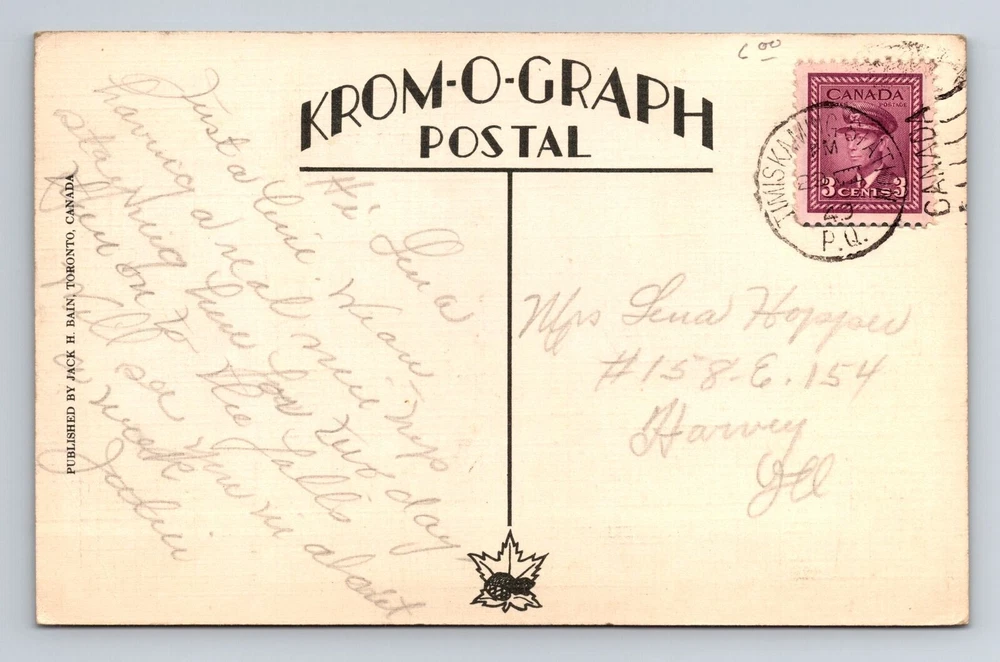 6.00
KROM-O-GRAPH
POSTAL
CANADA
POSTAGE
3 CENTS 3
CANADA
P.Q.
Hi Lena
Just a line. Wean
having a real nice trip
stay here for two day
then on to the falls
Will see you in about
a week
Julia
Mrs Lena Hopper
#158-E. 154
Harvey
Ill
PUBLISHED BY JACK H. BAIN, TORONTO, CANADA